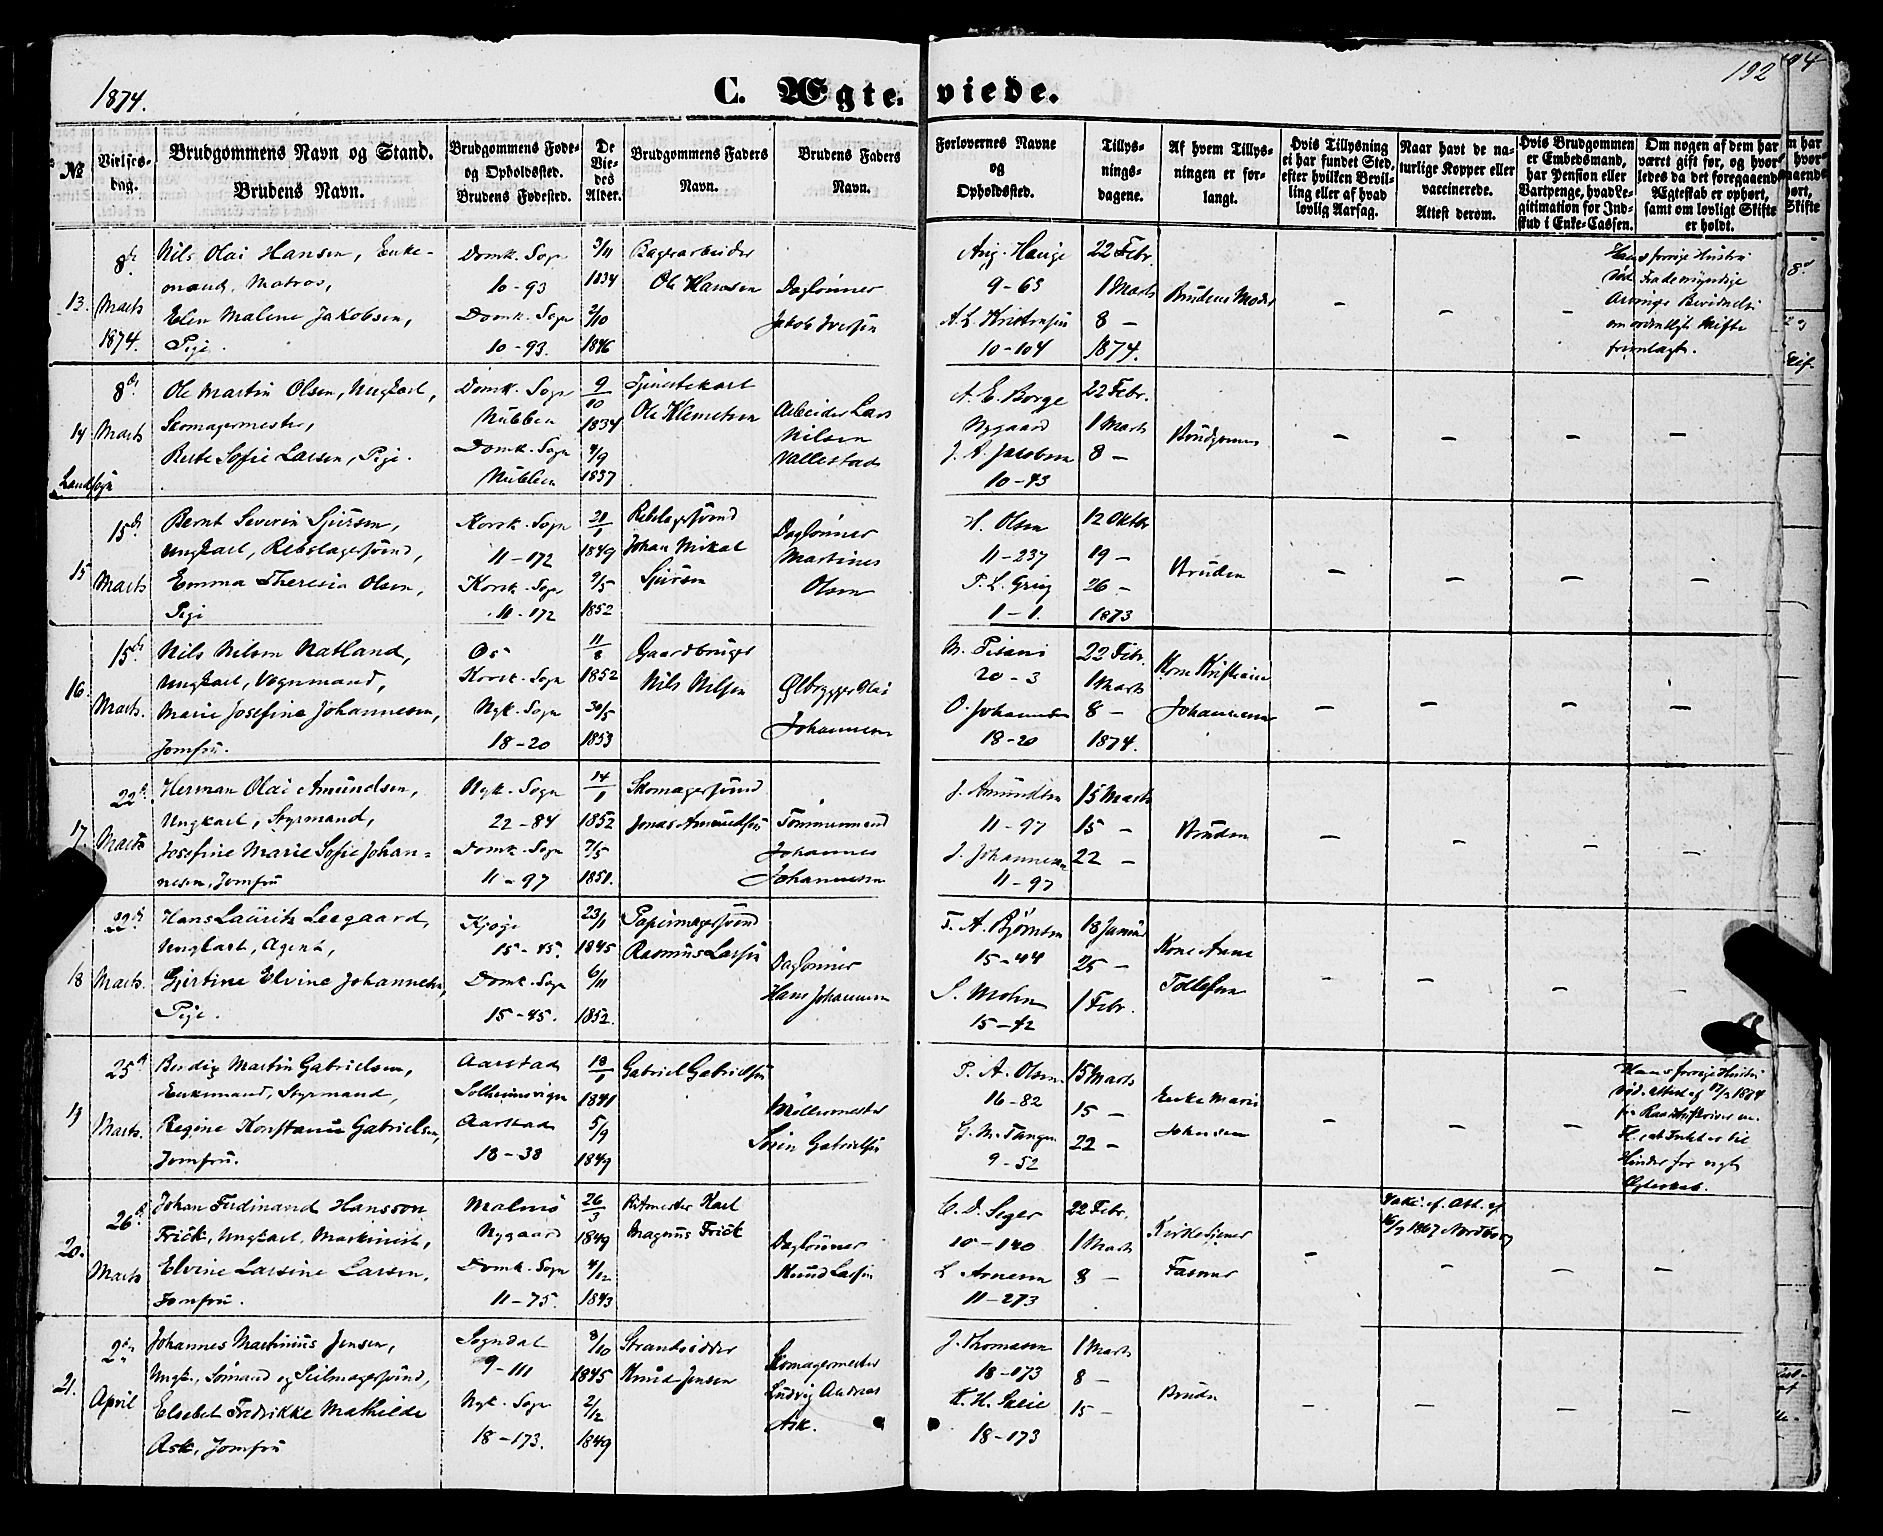 1874.
C. Ægte- viede.
192
94
№
Vielses-
dag.
Brudgommens Navn og Stand.
Brudens Navn.
Brudgommens Føde-
og Opholdssted.
Brudens Fødested.
De
Vie-
des
Alder.
Brudgommens Faders
Navn.
Brudens Faders
Navn.
Forlovernes Navne
og
Opholdssted.
Tillys-
nings-
dagene.
Af hvem Tillys-
ningen er for-
langt.
Hvis Tillysning
ei har fundet Sted,
efter hvilken Bevil-
ling eller af hvad
lovlig Aarsag.
Naar havt de na-
turlige Kopper eller
vaccinerede.
Attest derom.
Hvis Brudgommen
er Embedsmand,
har Pension eller
Vartpenge, hvad Le-
gitimation for Ind-
skud i Enke-Cassen.
Om nogen af dem har
været gift før, og hvor-
ledes da det foregaaende
Ægteskab er ophørt,
samt om lovligt Skifte
er holdt.
13.
8de
Marts
1874.
Nils Olai Hansen, Enke-
mand, Matros,
Elen Malene Jakobsen,
Pige.
Domk. Sogn
10-93
Domk. Sogn
10-93.
3/11
1834
2/10
1846
Bagerarbeider
Ole Hansen
Daglønner
Jakob Iversen
Aug. Hauge
9-63
A. L. Kristensen
10-104
22 Febr.
1 Marts
8 -
1874.
Brudens Moder
-
-
Hans forrige Hustru
død.
om ordentligt Skifte
fremlagt.
14.
8de
Marts
Landsogn
Ole Martin Olsen, Ungkarl,
Skomagermester,
Berte Sofie Larsen, Pige.
Domk. Sogn
Nubben
Domk. Sogn
Nubben
9/10
1834
4/9
1837
Tjenestekarl
Ole Klemetsen
Arbeider Lars
Nilsen
Vallestad
A. E. Borge
Nygaard
J. A. Jacobsen
10-43
22 Febr.
1 Marts
8 -
Brudgommen
-
-
-
-
15
15de
Marts
Bernt Severin Sjursen,
Ungkarl, Rebslagersvend,
Emma Theresia Olsen,
Pige
Korsk. Sogn
11-172
Korsk. Sogn
11-172
21/1
1849
9/5
1852
Rebslagersvend
Johan Mikal
Sjursen
Daglønner
Martines
Olsen
H. Olsen
11-237
P. L. Grieg
1-1.
12 Oktbr
19 -
26 -
1873
Bruden
-
-
-
-
16.
15de
Marts.
Nils Nilsen Natland,
Ungkarl, Vognmand,
Marie Josefine Johannesen,
Jomfru.
Os
Korsk. Sogn
Nyk. Sogn
18-20
11/8
1852
30/5
1853
Gaardbruger
Nils Nilsen
Ølbrygger Olai
Johannesen
20-3
O. Johannesen
18-20
22 Febr.
1 Marts
8 -
1874.
Kone Kristiane
Johannesen
-
-
-
-
17
22de
Marts
Herman Olai Amundsen,
Ungkarl, Styrmand,
Josefine Marie Sofie Johan-
nesen, Jomfru
Nyk. Sogn
22-84
Domk. Sogn
11-97
14/1
1852
7/5
1851.
Skomagersvend
Jonas Amundsen
Tømmermand
Johannes
Johannesen
J. Amundsen
11-97
J. Johannesen
11-97
15 Marts
15 -
22 -
Bruden
-
-
-
-
18
22de
Marts.
Hans Lauritz Leegaard,
Ungkarl, Agent,
Gjertine Elvine Johannesen,
Pige.
Kjøge
15-45.
Domk. Sogn
15-45.
23/1
1845
6/11
1852.
Papirmagersvend
Rasmus Larsen
Daglønner
Hans Johannesen
F. A. Bjørnsen
15-44
S. Mohn
15-42
18 Januar
25 -
1 Febr.
Kone Anne
Tollefsen
-
-
-
-
19
25de
Marts.
Berdix Martin Gabrielsen,
Enkemand, Styrmand,
Regine Konstance Gabrielsen,
Jomfru.
Aarstad
Solheimsvigen
Aarstad
18-38
18/1
1841
5/9
1849
Gabriel Gabrielsen
Møllermester
Søren Gabrielsen
P. A. Olsen
16-82
G. M. Tangen
9-52
15 Marts
15 -
22 -
Enke Marie
Johnsen
-
-
-
Hans forrige Hustru
død. Attest af 17/3 1874
fra Raadstueskriver
Hinder for nyt
Ægteskab.
20.
26de
Marts
Johan Ferdinand Hansson
Frick, Ungkarl, Maskinist,
Elvine Larsine Larsen,
Jomfru.
Malmø
Nygaard
Domk. Sogn
11-75.
26/3
1849
4/12
1843
Ritmester Karl
Magnus Frick
Daglønner
Knud Larsen
C. D. Seger
10-140
L. Arnesen
11-273
22 Febr.
1 Marts
8 -
Kirketjener
Fasmer
-
Vakc. ef. Att. af
16/9 1867 Nordborg
-
-
-
21.
2den
April
Johannes Martinius Jensen,
Ungk., Sømand og Seilmagersvend,
Elsebet Fredrikke Mathilde
Ask, Jomfru
Sogndal
9-111
Nyk. Sogn
18-173.
8/10
1845
2/12
1849
Strandsidder
Knud Jensen
Skomagermester
Ludvig Andreas
Ask.
J. Thomasen
18-173
18-173
1 Marts
8 -
15 -
Bruden
-
-
-
-